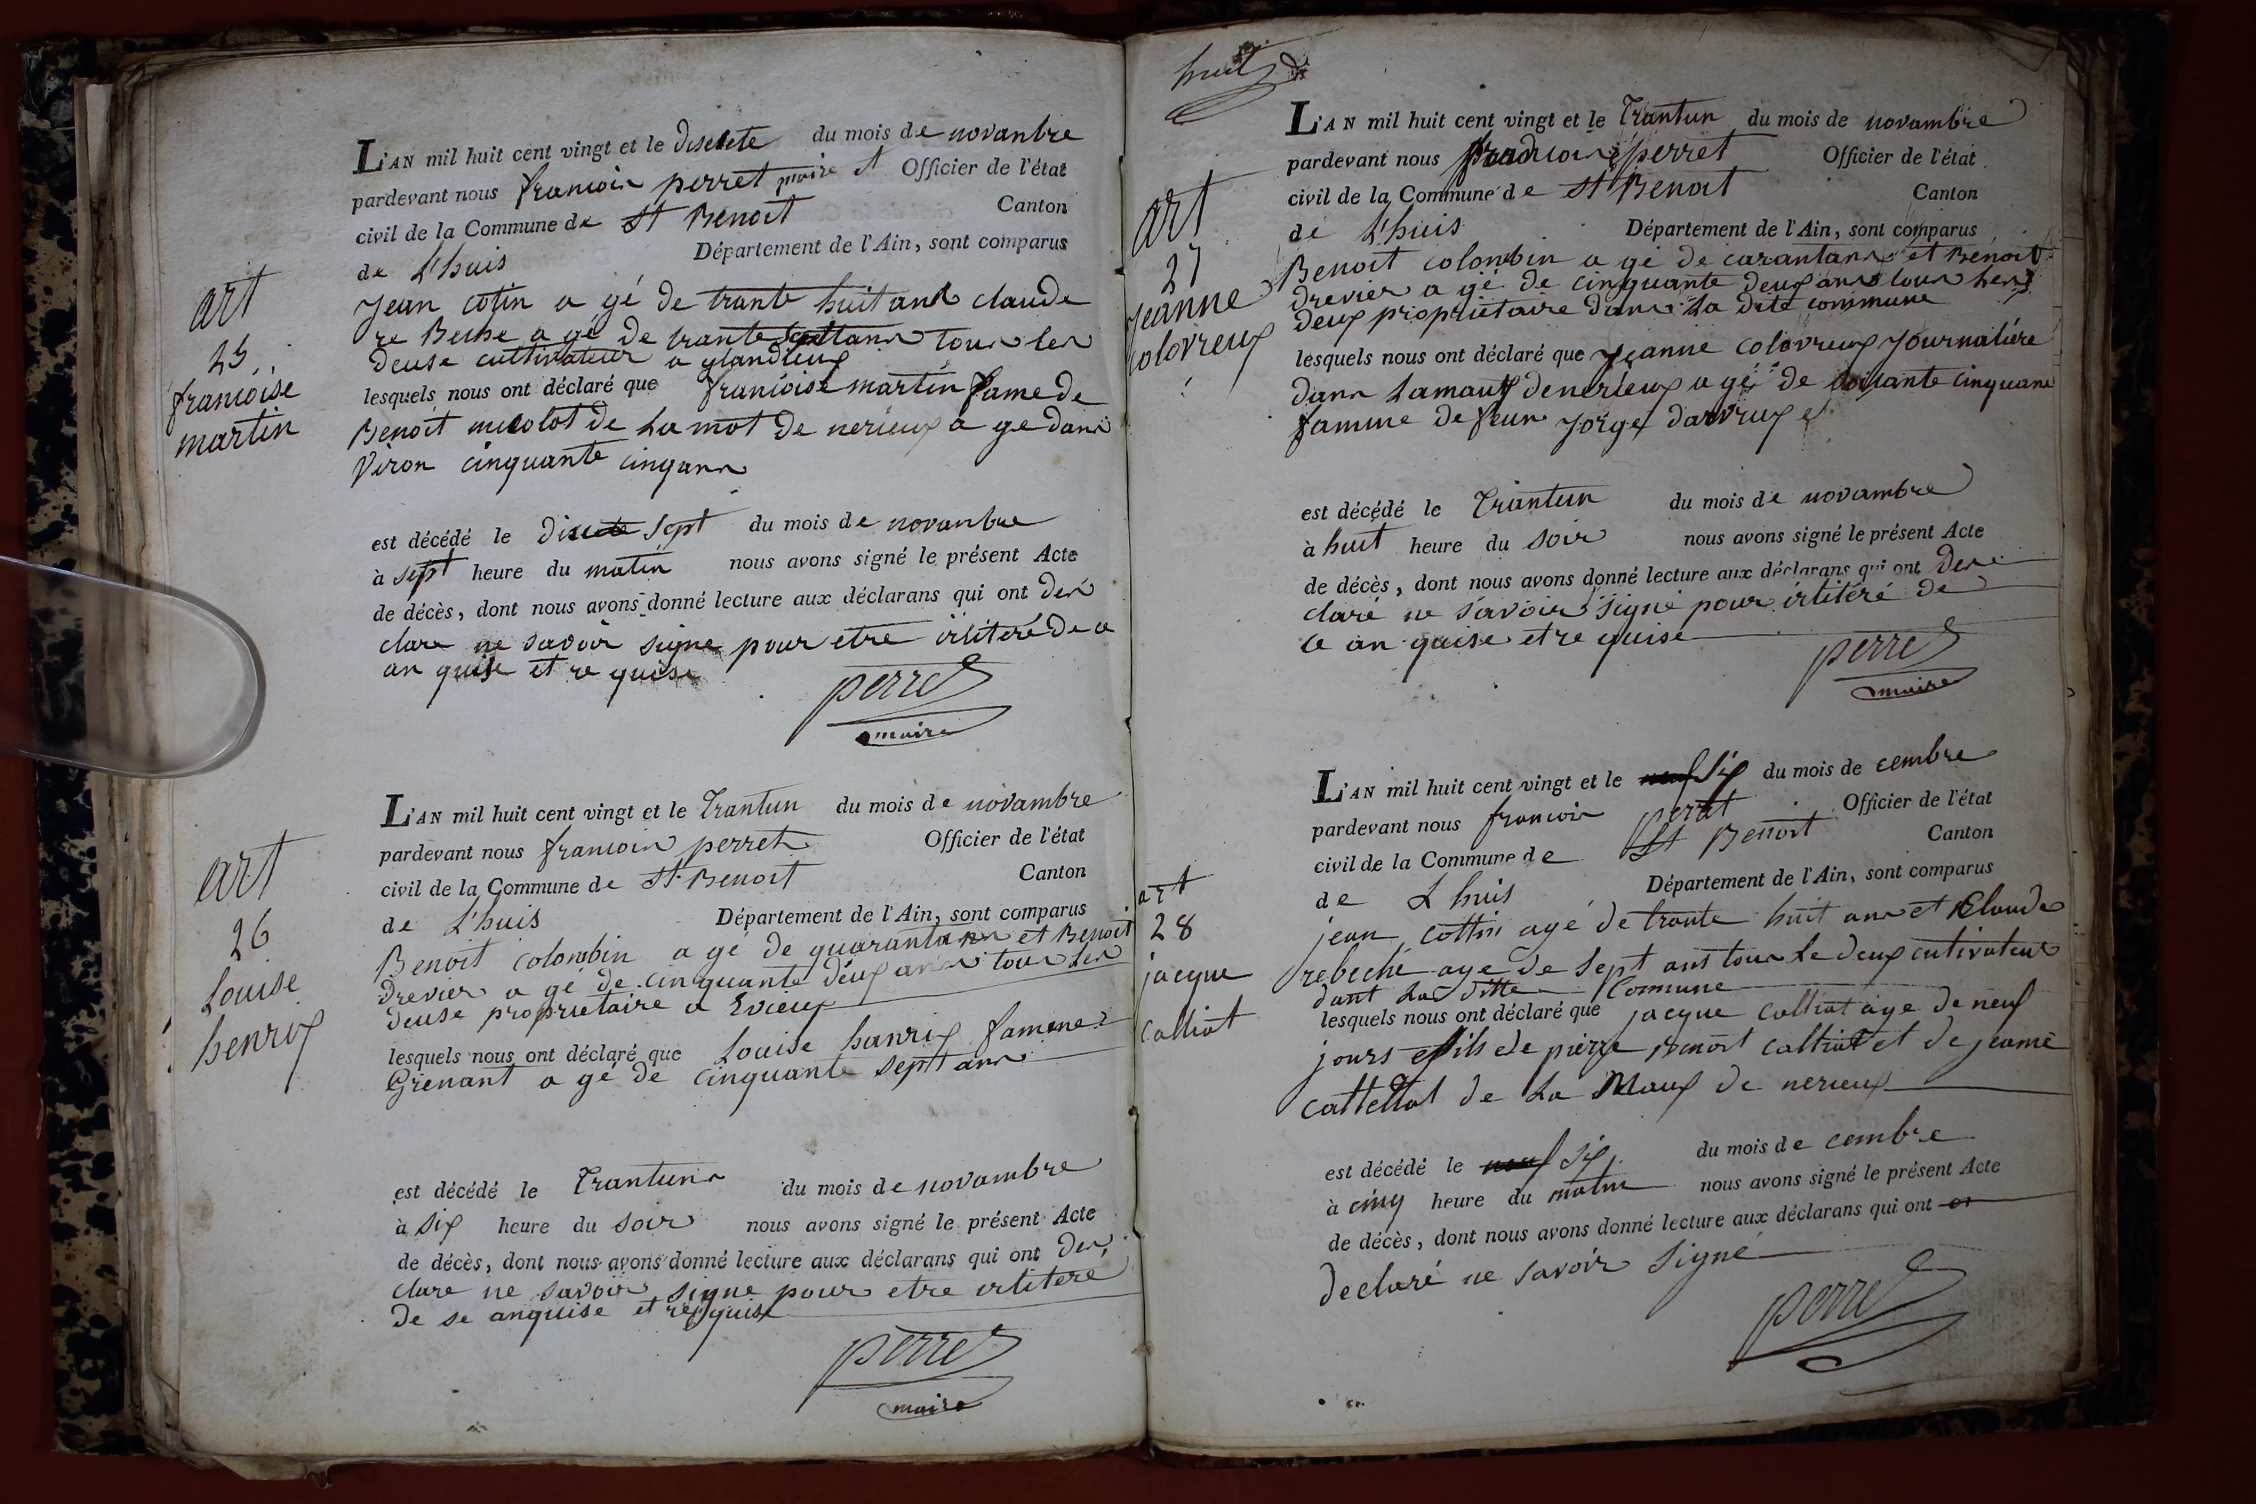 art
25
francoise
martin
L'AN mil huit cent vingt et le disesete du mois de novanbre
pardevant nous francois perret maire et Officier de l'état
civil de la Commune de St Benoit Canton
de L'huis Département de l'Ain, sont comparus
Jean cotin a gé de trante huit ans claude
re Beche a gé de trante sept ans tous les
deuse cultivateur a glandieux
lesquels nous ont déclaré que francoise martin fame de
Benoit micolot de La mot de nerieux a ge dans
viron cinquante cinq ans
est décédé le dis sept du mois de novanbre
à sept heure du matin nous avons signé le présent Acte
de décès, dont nous avons donné lecture aux déclarans qui ont de
clare ne savoir signe pour etre irliteré de ce
an quise et re quise
perret
maire
art
26
Louise
henrix
L'AN mil huit cent vingt et le Trantun du mois de novambre
pardevant nous francois perret Officier de l'état
civil de la Commune de St Benoit Canton
de L'huis Département de l'Ain, sont comparus
Benoit colonbin a gé de quarantans et Benoit
Drevier a gé de cinquante deux ans tous les
deuse proprietaire a Evieux
lesquels nous ont déclaré que Louise hanrix famme
Grenant a gé de cinquante sept ans
est décédé le Trantun du mois de novambre
à six heure du soir nous avons signé le présent Acte
de décès, dont nous avons donné lecture aux déclarans qui ont de
clare ne savoir signe pour etre irlitere
de se anquise et re quise
perret
maire
huit
art
27
Jeanne
colovreux
L'AN mil huit cent vingt et le Trantun du mois de novambre
pardevant nous francois perret Officier de l'état
civil de la Commune de St Benoit Canton
de L'huis Département de l'Ain, sont comparus
Benoit colonbin a gé de carantans et Benoit
Drevier a gé de cinquante deux ans tous les
deux propriétaire dans La dite commune
lesquels nous ont déclaré que Jeanne colovreux Journaliére
dans Lamaux de nerieux a gé de soixante cinquans
famme de feun Jorge darvrux
est décédé le Trantun du mois de novambre
à huit heure du soir nous avons signé le présent Acte
de décès, dont nous avons donné lecture aux déclarans qui ont de
claré ne savoir signé pour irlitéré de
ce an quise et re quise
perret
maire
art
28
jacque
calliot
L'AN mil huit cent vingt et le neuf six du mois de cembre
pardevant nous francois perat Officier de l'état
civil de la Commune de St Benoit Canton
de L huis Département de l'Ain, sont comparus
jean cottin agé de trante huit ans et Claude
rebeché age de sept ans tous le deux cutivateur
dant La ditte Commune
lesquels nous ont déclaré que jacque calliot age de neuf
jours fils de pierre benoit calliot et de jeanne
cattellat de La Maux de nerieux
est décédé le neuf six du mois de cembre
à cinq heure du matin nous avons signé le présent Acte
de décès, dont nous avons donné lecture aux déclarans qui ont
declaré ne savoir signé
perret